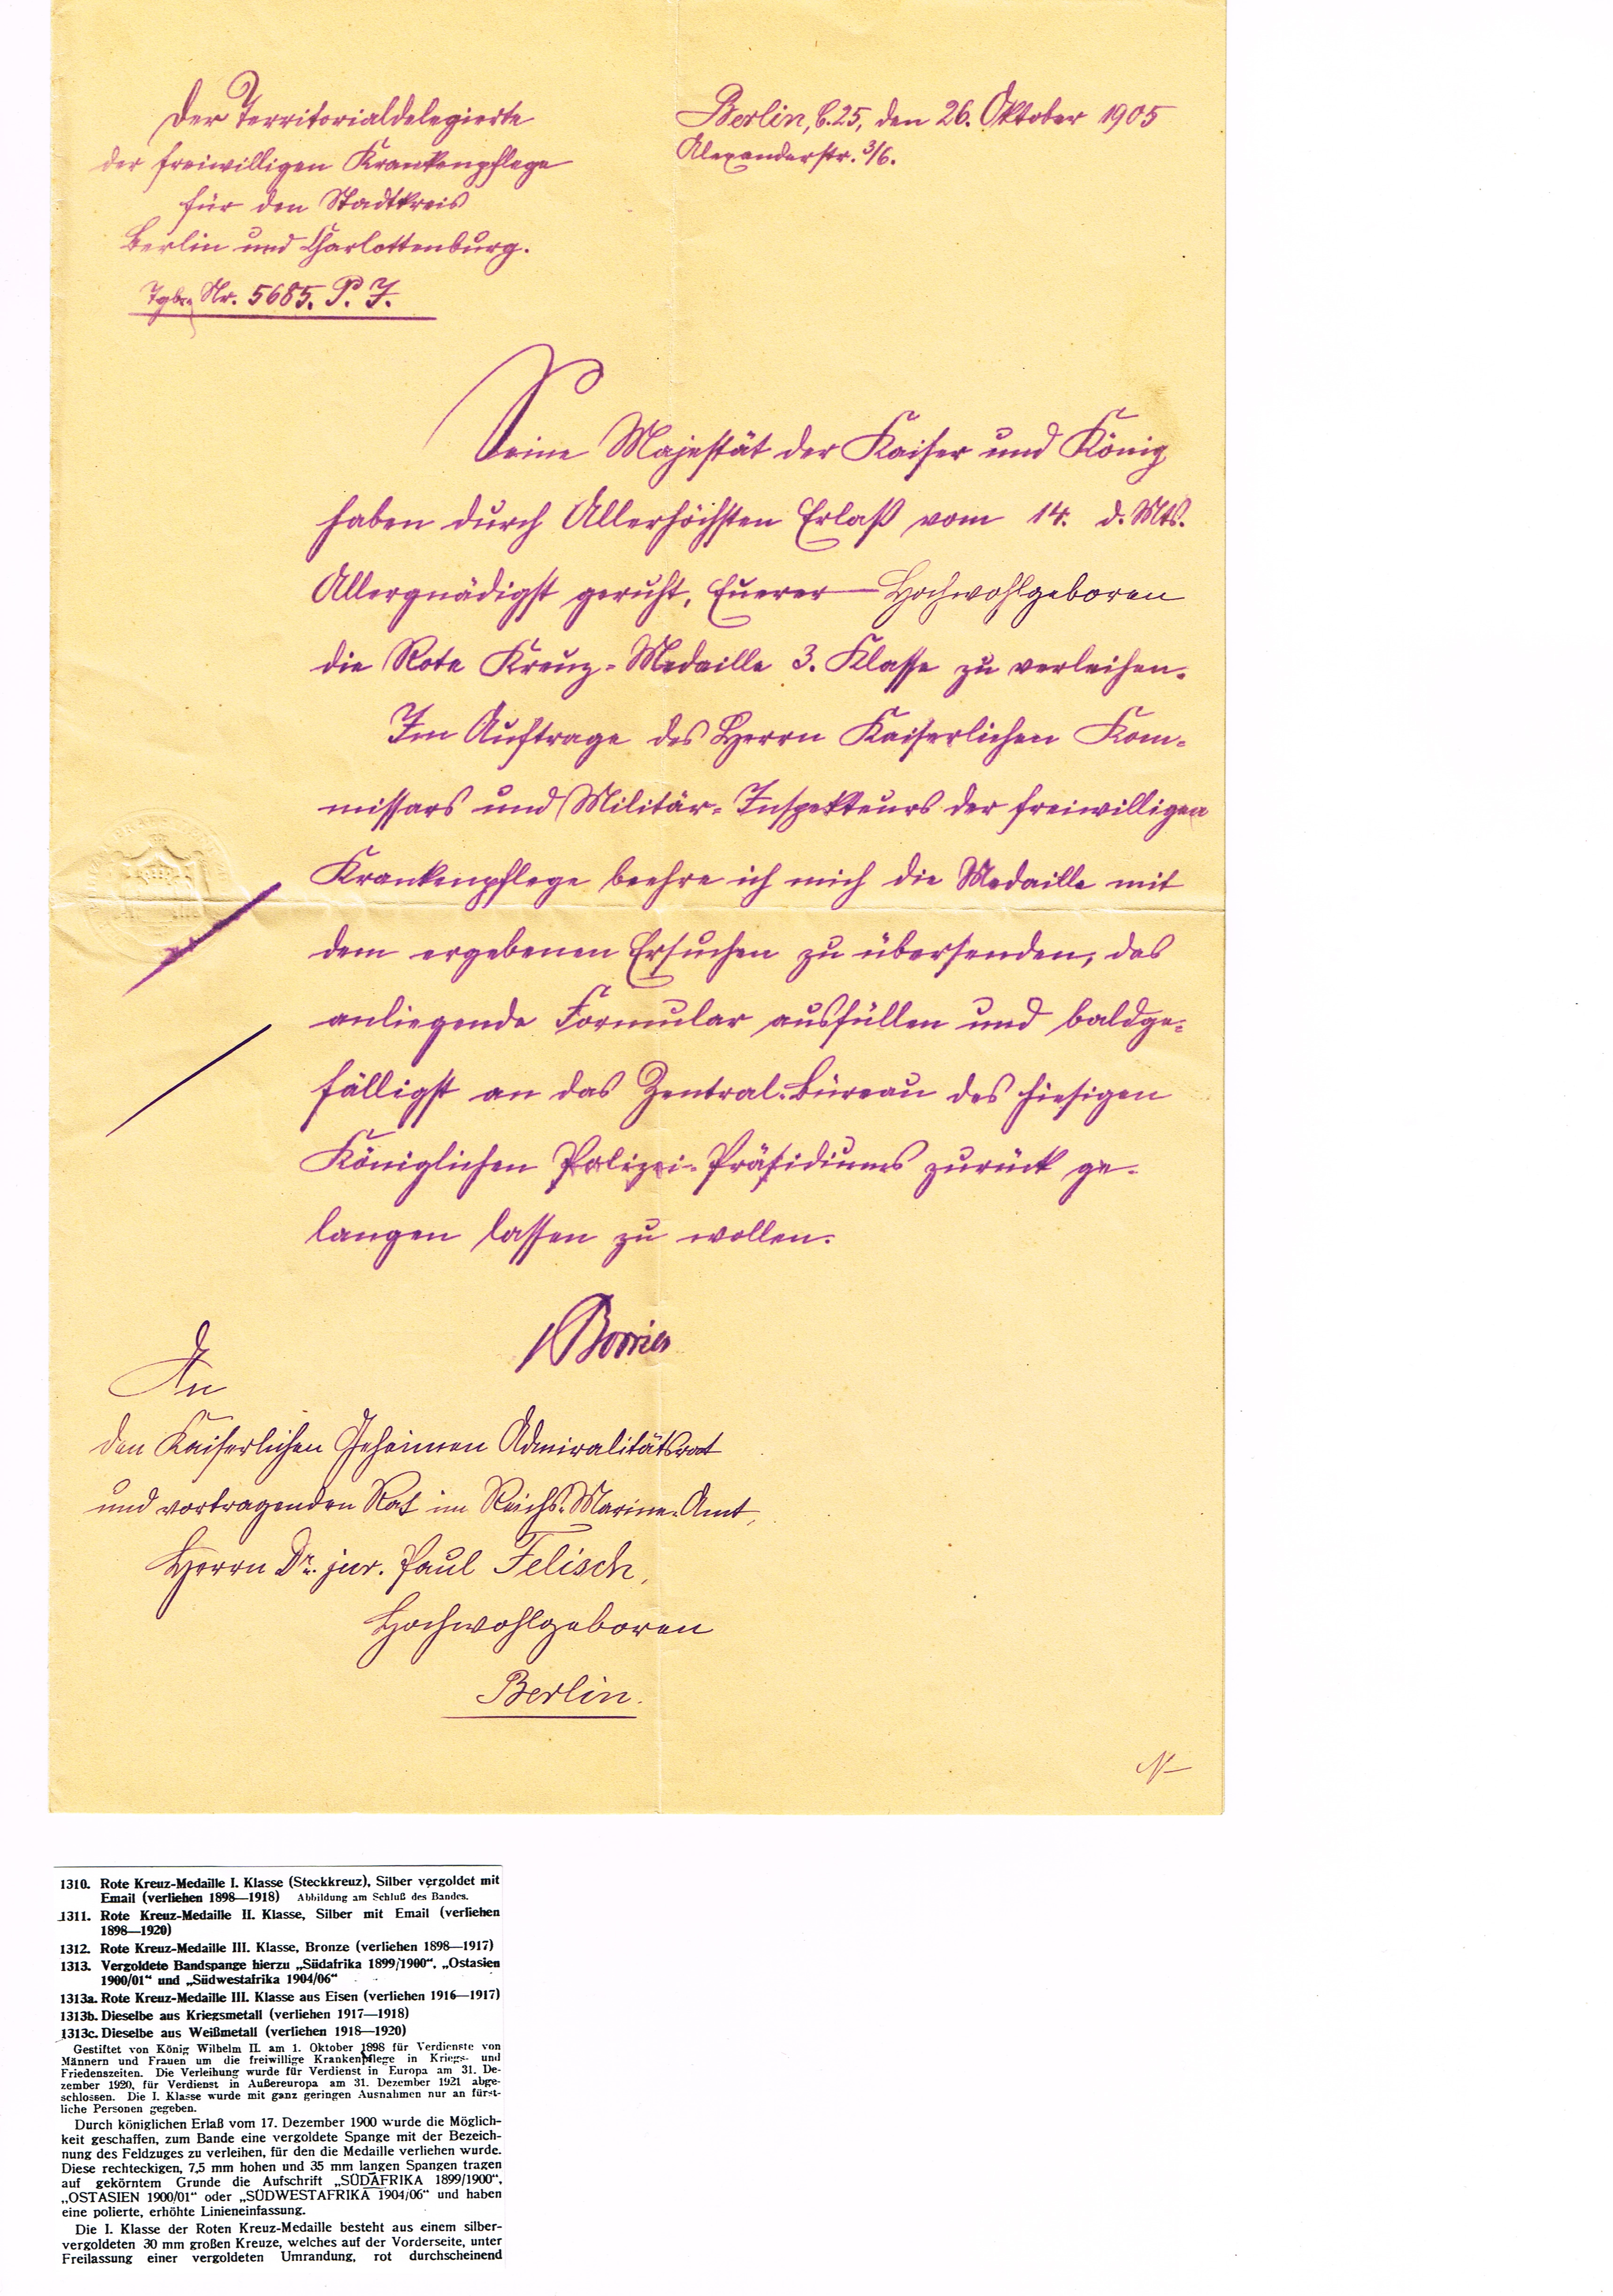 Der Territorialdelegierte
der freiwilligen Krankenpflege
für den Stadtkreis
Berlin und Charlottenburg.
Tgb. Nr. 5685. P. J.
Berlin, C.25, den 26. Oktober 1905
Alexanderstr. 3/6.
Seine Majestät der Kaiser und König
haben durch Allerhöchsten Erlaß vom 14. d. Mts.
Allergnädigst geruht, Euerer Hochwohlgeboren
die Rote Kreuz-Medaille 3. Klasse zu verleihen.
Im Auftrage des Herrn Kaiserlichen Kom-
missars und Militär-Inspekteurs der freiwilligen
Krankenpflege beehre ich mich die Medaille mit
dem ergebenen Ersuchen zu übersenden, das
anliegende Formular ausfüllen und baldge-
fälligst an das Zentral-Büreau des hiesigen
Königlichen Polizei-Präsidiums zurück ge-
langen lassen zu wollen.
Borries
An
den Kaiserlichen Geheimen Admiralitätsrat
und vortragenden Rat im Reichs-Marine-Amt,
Herrn Dr. jur. Paul Felisch,
Hochwohlgeboren
Berlin.
1310. Rote Kreuz-Medaille I. Klasse (Steckkreuz), Silber vergoldet mit
Email (verliehen 1898—1918) Abbildung am Schluß des Bandes.
1311. Rote Kreuz-Medaille II. Klasse, Silber mit Email (verliehen
1898—1920)
1312. Rote Kreuz-Medaille III. Klasse, Bronze (verliehen 1898—1917)
1313. Vergoldete Bandspange hierzu „Südafrika 1899/1900“, „Ostasien
1900/01“ und „Südwestafrika 1904/06“
1313a. Rote Kreuz-Medaille III. Klasse aus Eisen (verliehen 1916—1917)
1313b. Dieselbe aus Kriegsmetall (verliehen 1917—1918)
1313c. Dieselbe aus Weißmetall (verliehen 1918—1920)
Gestiftet von König Wilhelm II. am 1. Oktober 1898 für Verdienste von
Männern und Frauen um die freiwillige Krankenpflege in Kriegs- und
Friedenszeiten. Die Verleihung wurde für Verdienst in Europa am 31. De-
zember 1920, für Verdienst in Außereuropa am 31. Dezember 1921 abge-
schlossen. Die I. Klasse wurde mit ganz geringen Ausnahmen nur an fürst-
liche Personen gegeben.
Durch königlichen Erlaß vom 17. Dezember 1900 wurde die Möglich-
keit geschaffen, zum Bande eine vergoldete Spange mit der Bezeich-
nung des Feldzuges zu verleihen, für den die Medaille verliehen wurde.
Diese rechteckigen, 7,5 mm hohen und 35 mm langen Spangen tragen
auf gekörntem Grunde die Aufschrift „SÜDAFRIKA 1899/1900“,
„OSTASIEN 1900/01“ oder „SÜDWESTAFRIKA 1904/06“ und haben
eine polierte, erhöhte Linieneinfassung.
Die I. Klasse der Roten Kreuz-Medaille besteht aus einem silber-
vergoldeten 30 mm großen Kreuze, welches auf der Vorderseite, unter
Freilassung einer vergoldeten Umrandung, rot durchscheinend